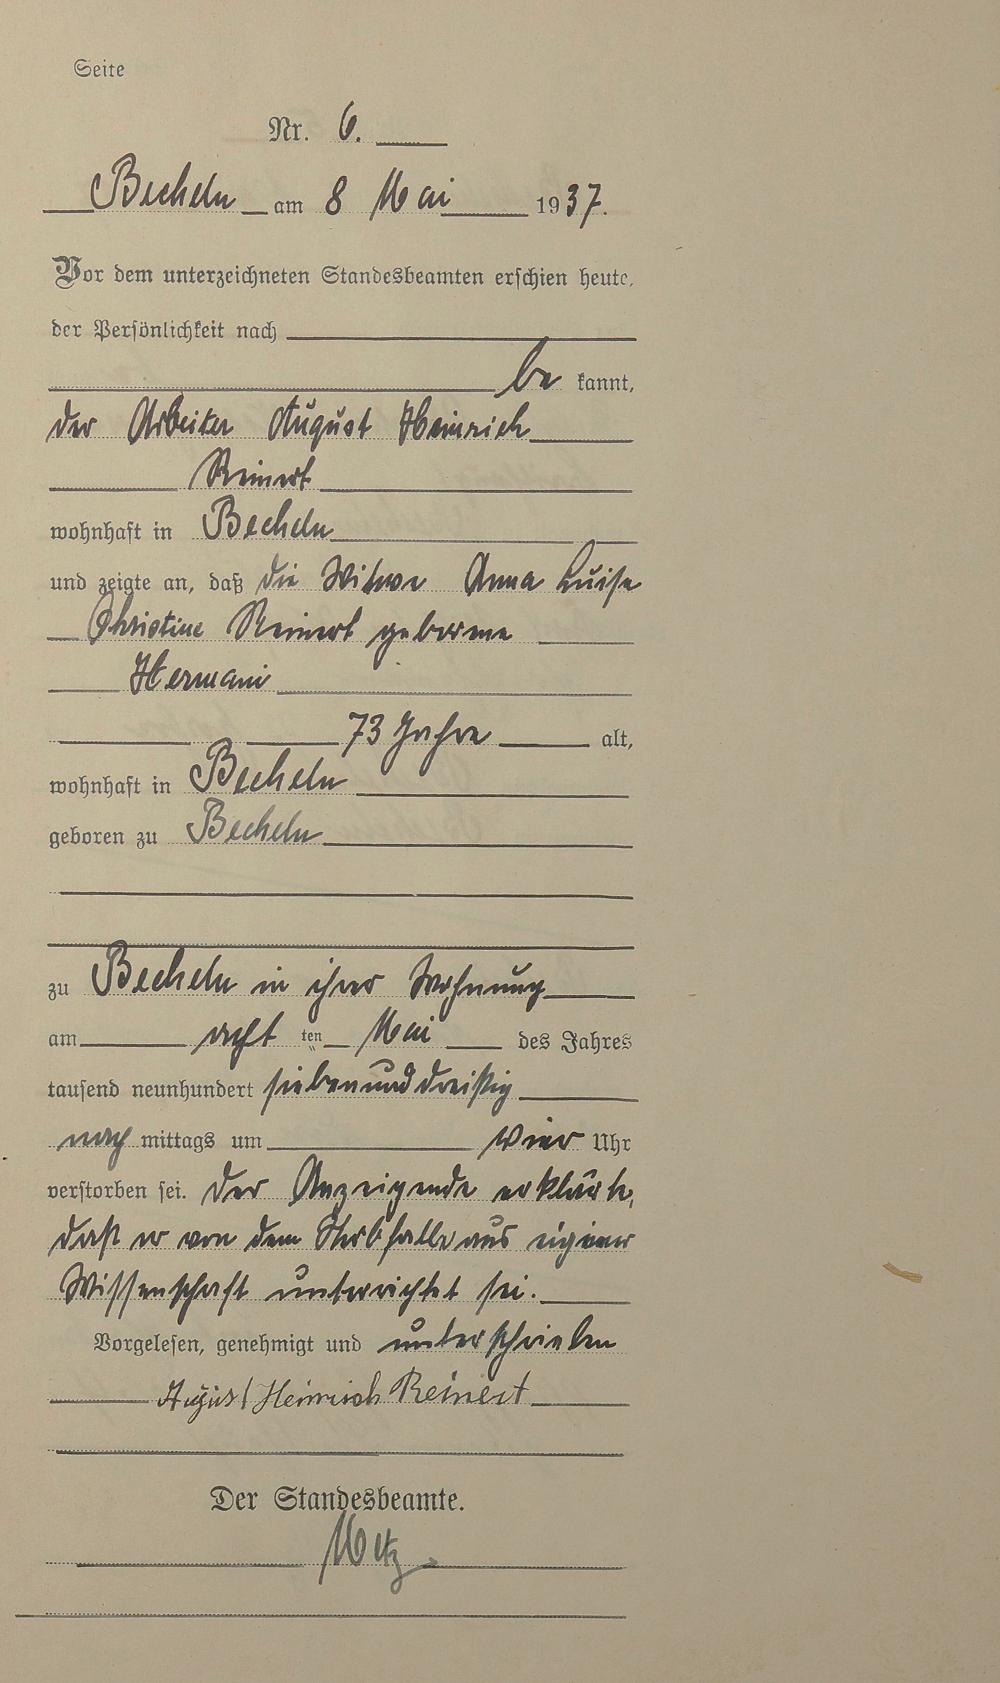 Seite
Nr. 6.
Becheln am 8 Mai 1937.
Vor dem unterzeichneten Standesbeamten erschien heute,
der Persönlichkeit nach
be kannt,
der Arbeiter August Heinrich
Reinert
wohnhaft in Becheln
und zeigte an, daß die Witwe Anna Luise
Christine Reinert geborene
Hermani
73 Jahre alt,
wohnhaft in Becheln
geboren zu Becheln
zu Becheln in ihrer Wohnung
am acht ten Mai des Jahres
tausend neunhundert siebenunddreißig
nach mittags um vier Uhr
verstorben sei. Der Anzeigende erklärte,
daß er von dem Sterbfalle aus eigener
Wissenschaft unterrichtet sei.
Vorgelesen, genehmigt und unterschrieben
August Heinrich Reinert
Der Standesbeamte.
Metz